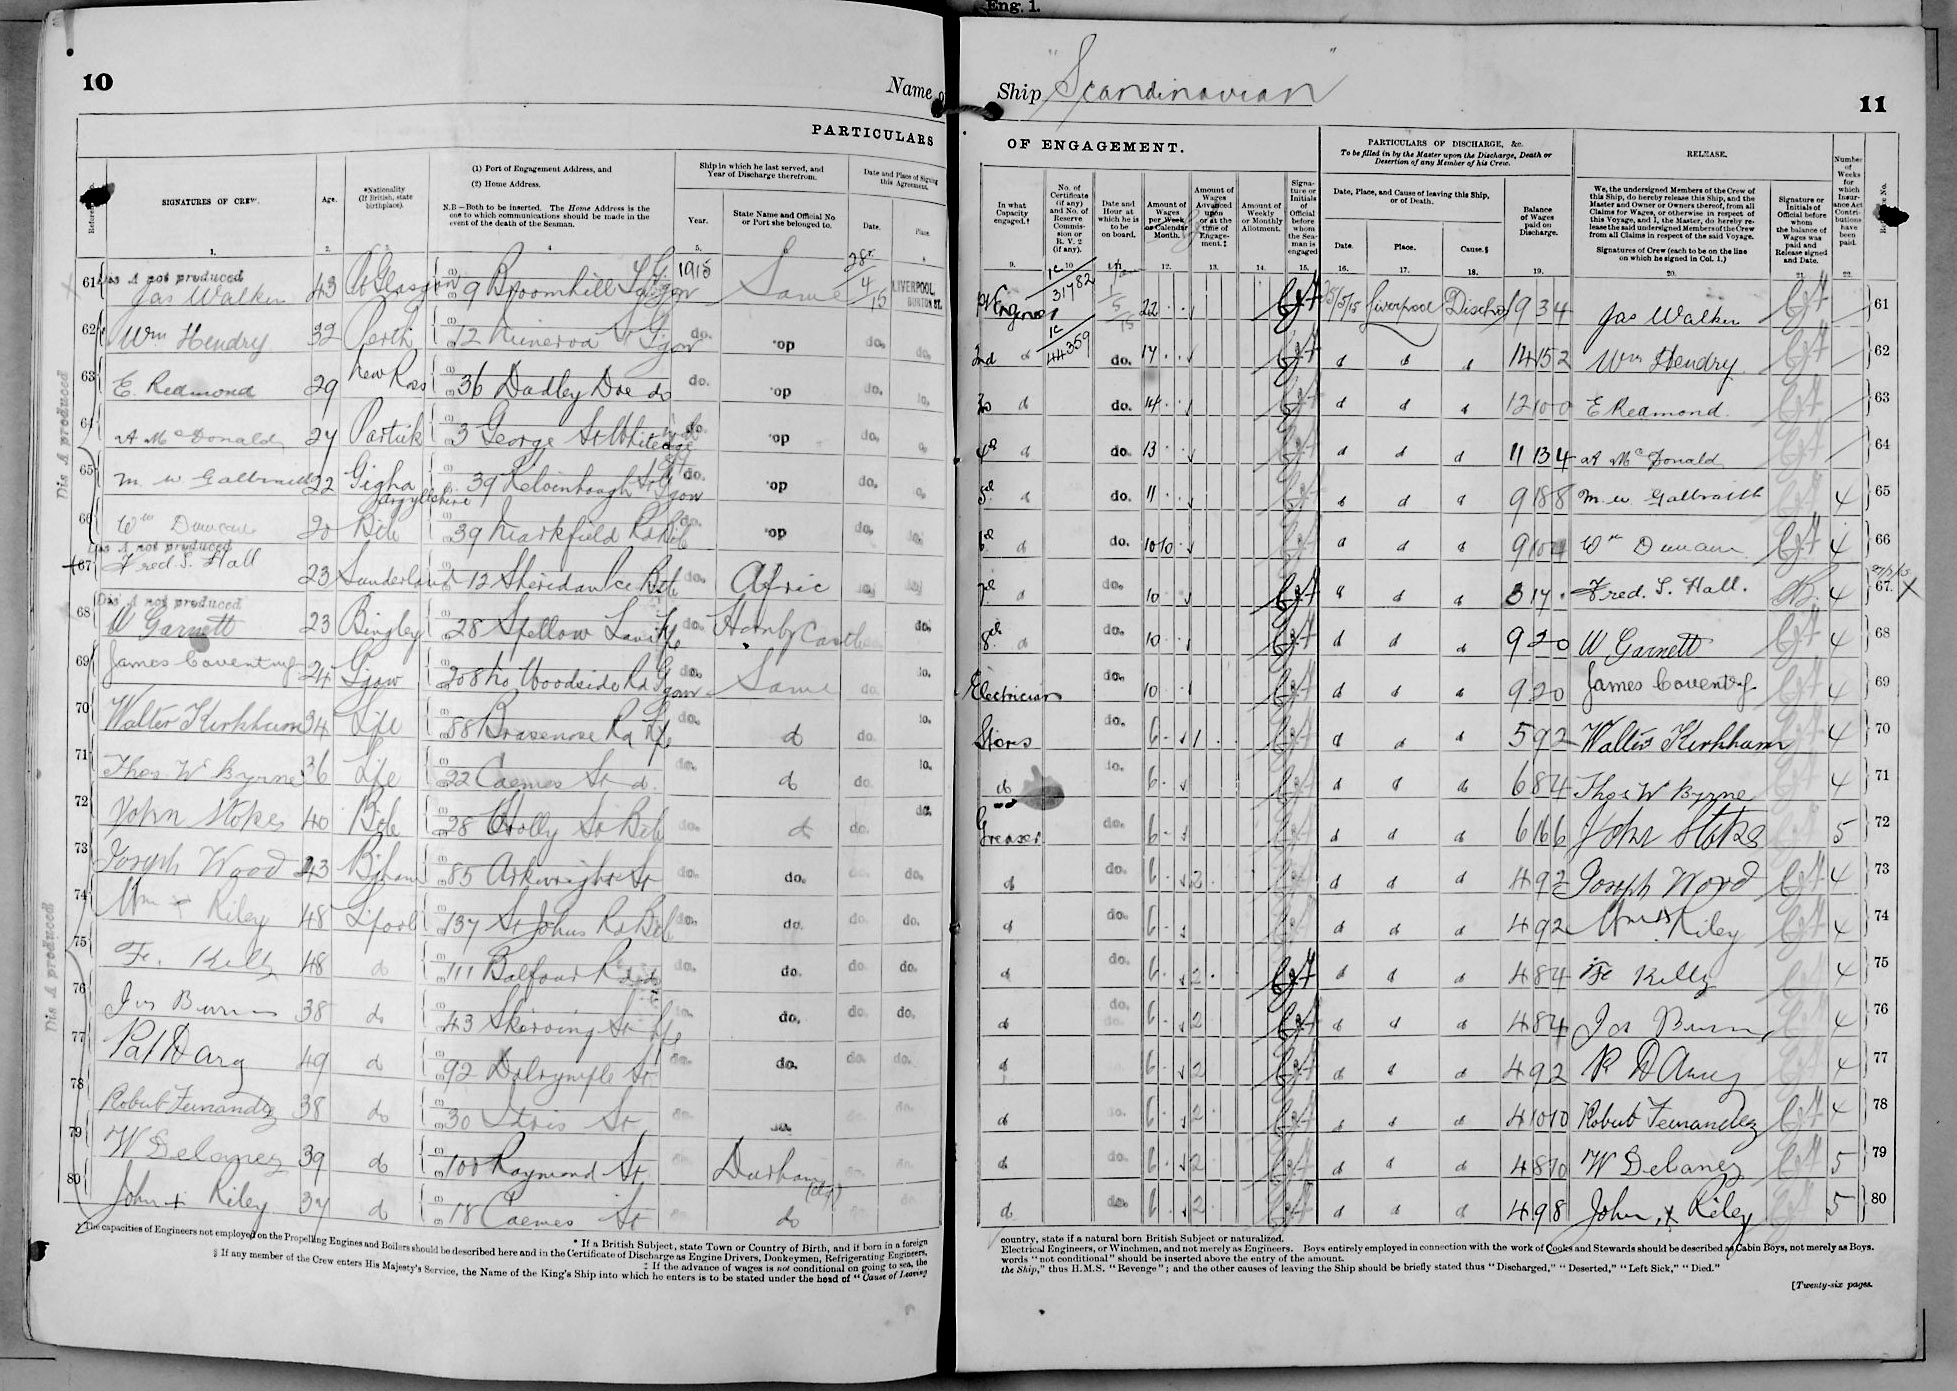 Eng. 1.
10
Name o
Ship "Scandinavian"
11
PARTICULARS
OF ENGAGEMENT.
PARTICULARS OF DISCHARGE, &c.
To be filled in by the Master upon the Discharge, Death or
Desertion of any Member of his Crew.
RELEASE.
SIGNATURES OF CREW.
Age.
*Nationality
(If British, state
birthplace).
(1) Port of Engagement Address, and
(2) Home Address.
N.B—Both to be inserted. The Home Address is the
one to which communications should be made in the
event of the death of the Seaman.
Ship in which he last served, and
Year of Discharge therefrom.
Year.
State Name and Official No.
or Port she belonged to.
Date and Place of Signing
this Agreement.
Date.
Place.
In what
Capacity
engaged.†
No. of
Certificate
(if any)
and No. of
Reserve
Commis-
sion or
R. V. 2
(if any).
Date and
Hour at
which he is
to be
on board.
Amount of
Wages
per Week
or Calendar
Month.
Amount of
Wages
Advanced
upon
or at the
time of
Engage-
ment.‡
Amount of
Weekly
or Monthly
Allotment.
Signa-
ture or
Initials
of
Official
before
whom
the Sea-
man is
engaged
Date, Place, and Cause of leaving this Ship,
or of Death.
Date.
Place.
Cause.§
Balance
of Wages
paid on
Discharge.
We, the undersigned Members of the Crew of
this Ship, do hereby release this Ship, and the
Master and Owner or Owners thereof, from all
Claims for Wages, or otherwise in respect of
this Voyage, and I, the Master, do hereby re-
lease the said undersigned Members of the Crew
from all Claims in respect of the said Voyage.
Signatures of Crew (each to be on the line
on which he signed in Col. 1.)
Signature or
Initials of
Official before
whom
the balance of
Wages was
paid and
Release signed
and Date.
Number
of
Weeks
for
which
Insur-
ance Act
Contri-
butions
have
been
paid.
1. 2. 3. 4. 5. 9. 10 12. 13. 14. 15. 16. 17. 18. 19. 20. 21. 22.
Dis A not produced
61 Jas Walker 43 9 Broomhill 1915 Same 28/4/15 LIVERPOOL, BURTON ST. Engineer 31782 22 Liverpool 9 3 4 Jas Walker 61
62 Wm Hendry 32 Perth 12 Minerva St Ggow do. op do. do. 2nd d 44359 do. 17 d d d 14 15 2 Wm Hendry 62
63 E. Redmond 29 New Ross 36 Dudley Doe do do. op do. do. 3d d do. 14 d d d 12 10 0 E Redmond 63
64 A McDonald 27 Partick 3 George St Whiteinch do. op do. 4th d do. 13 d d d 11 13 4 A McDonald 64
65 M. W Galbraith 22 Gigha Argyllshire 39 Kelvinhaugh St Ggow do. op do. 5th d do. 11 d d d 9 18 8 M W Galbraith 4 65
66 Wm Duncan 20 39 Markfield Rd do. op do. do. 6th d do. 10 10 d d d 9 10 4 Wm Duncan 4 66
Dis A not produced
67 Fred. S. Hall 23 Sunderland 12 Sheridan do. Afric do. do. 7th d do. 10 d d 3 17 Fred. S. Hall. 4 67 X
Dis A not produced
68 W Garnett 23 Bingley 28 Spellow Lane do. Hornby Castle do. 8th d do. 10 d d d 9 2 0 W Garnett 4 68
69 James Coventry 24 Ggow 208 No Woodside Rd Ggow do. Same do. do. Electrician do. 10 d d d 9 2 0 James Coventry 4 69
70 Walter Kirkham 34 88 Brasenose Rd do. d do. do. Stores do. 6 1 d d d 5 9 2 Walter Kirkham 4 70
71 Thos. W Byrne 36 22 Caemes St do. d do. do. do do. 6 d d d 6 8 4 Thos W Byrne 4 71
72 John Stokes 40 28 Holly St do. d do. do. Greaser do. 6 d d d 6 16 6 John Stokes 5 72
73 Joseph Wood 43 B'ham 85 Arkwright St do. do. do. do. d do. 6 2 d d d 4 9 2 Joseph Wood 4 73
74 Wm x Riley 48 L'pool 137 St Johns Rd do. do. do. do. d do. 6 d d d 4 9 2 Wm x Riley 4 74
75 Fr. Kelly 48 d 111 Balfour Rd do. do. do. do. d do. 6 2 d d d 4 8 4 Fr Kelly 4 75
76 Jos Burns 38 do 43 Skirving St do. do. do. do. d do. 6 2 d d d 4 8 4 Jos Burns 4 76
77 Pat Darcy 49 d 92 Dalrymple St do. do. do. do. d 6 2 d d d 4 9 2 P Darcy 4 77
78 Robert Fernandez 38 do 30 Idris St do. do. do. do. d do. 6 2 d d d 4 10 10 Robert Fernandez 4 78
79 W Delaney 39 d 100 Raymond St do. Durham do. do. d do. 6 2 d d d 4 8 10 W Delaney 5 79
80 John x Riley 37 d 18 Caemes St do. do do. d do. 6 2 d d d 4 9 8 John x Riley 5 80
Dis A produced
Dis A produced
* If a British Subject, state Town or Country of Birth, and if born in a foreign
country, state if a natural born British Subject or naturalized.
The capacities of Engineers not employed on the Propelling Engines and Boilers should be described here and in the Certificate of Discharge as Engine Drivers, Donkeymen, Refrigerating Engineers,
Electrical Engineers, or Winchmen, and not merely as Engineers. Boys entirely employed in connection with the work of Cooks and Stewards should be described as Cabin Boys, not merely as Boys.
‡ If the advance of wages is not conditional on going to sea, the
words "not conditional" should be inserted above the entry of the amount.
§ If any member of the Crew enters His Majesty's Service, the Name of the King's Ship into which he enters is to be stated under the head of "Cause of Leaving
the Ship," thus H.M.S. "Revenge"; and the other causes of leaving the Ship should be briefly stated thus "Discharged," "Deserted," "Left Sick," "Died."
[Twenty-six pages.